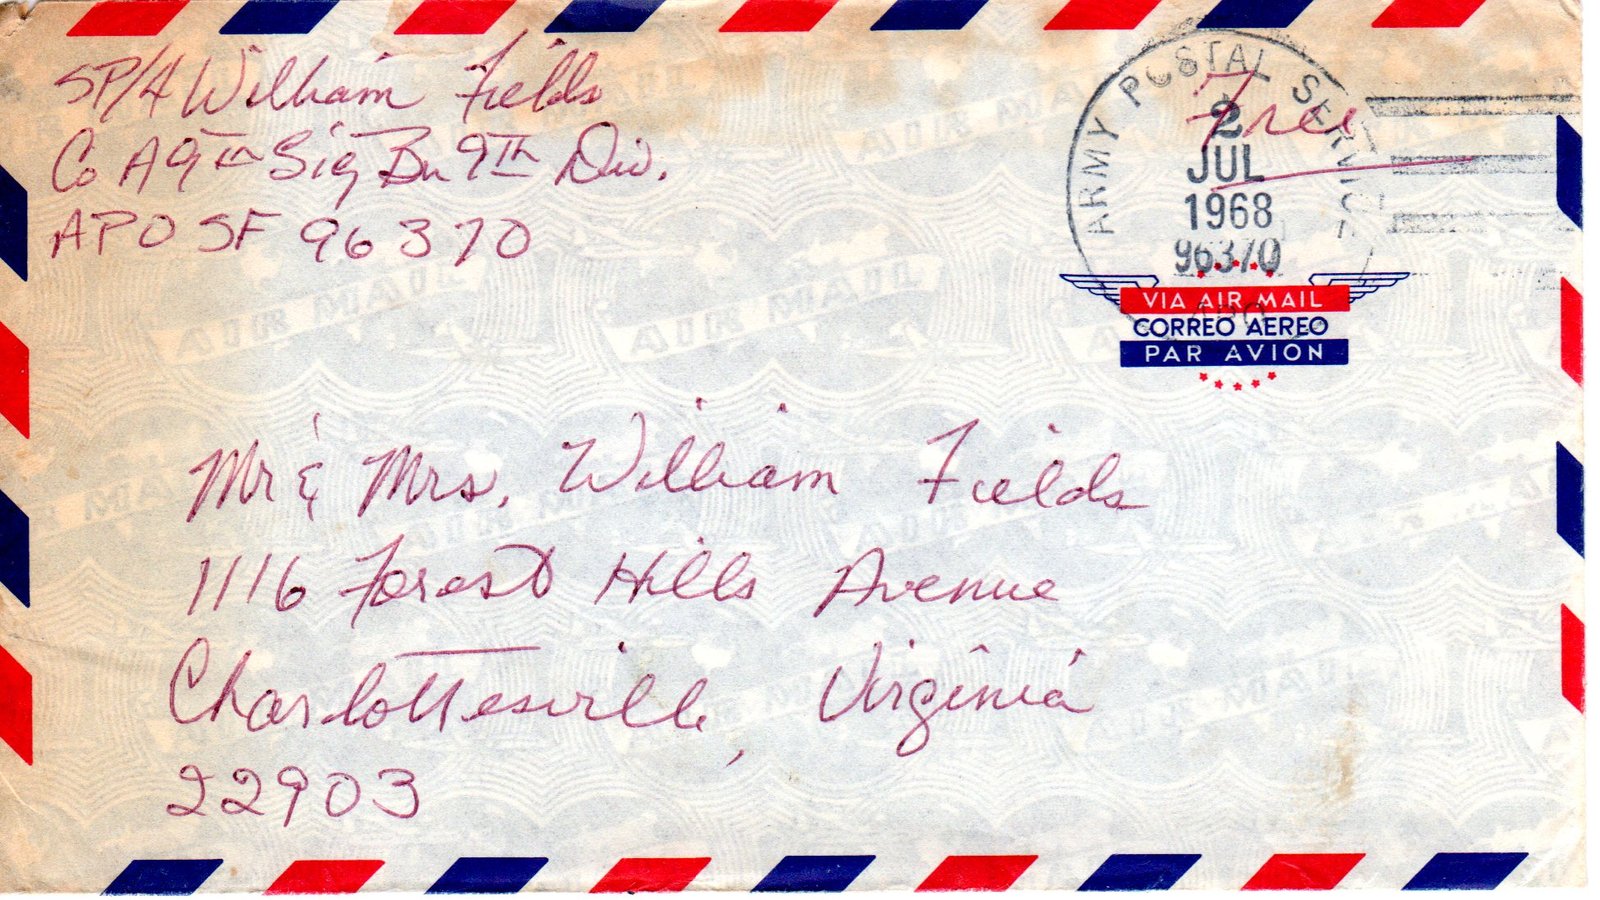 SP/4 William Fields
Co A 9th Sig Bn 9th Div.
APO SF 96370
ARMY POSTAL SERVICE
Free
2
JUL
1968
96370
APO
VIA AIR MAIL
CORREO AEREO
PAR AVION
Mr & Mrs. William Fields
1116 Forest Hills Avenue
Charlottesville, Virginia
22903